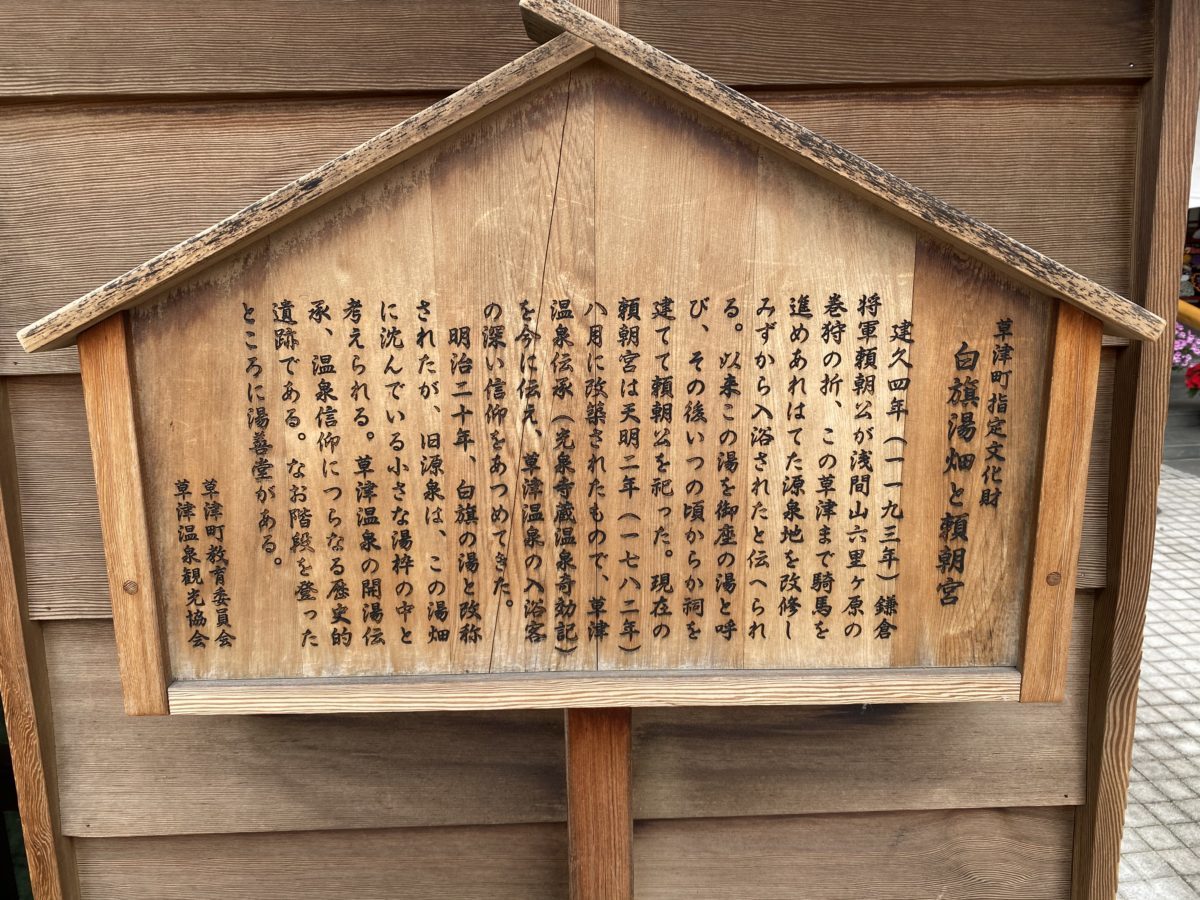 草津町指定文化財
白旗湯畑と頼朝宮
建久四年(一一九三年)鎌倉
将軍頼朝公が浅間山六里ヶ原の
巻狩の折、この草津まで騎馬を
進めあれはてた源泉地を改修し
みずから入浴されたと伝へられ
る。以来この湯を御座の湯と呼
び、その後いつの頃からか祠を
建てて頼朝公を祀った。現在の
頼朝宮は天明二年(一七八二年)
八月に改築されたもので、草津
温泉伝承(光泉寺蔵温泉奇効記)
を今に伝え、草津温泉の入浴客
の深い信仰をあつめてきた。
明治二十年、白旗の湯と改称
されたが、旧源泉は、この湯畑
に沈んでいる小さな湯枠の中と
考えられる。草津温泉の開湯伝
承、温泉信仰につらなる歴史的
遺跡である。なお階段を登った
ところに湯善堂がある。
草津町教育委員会
草津温泉観光協会